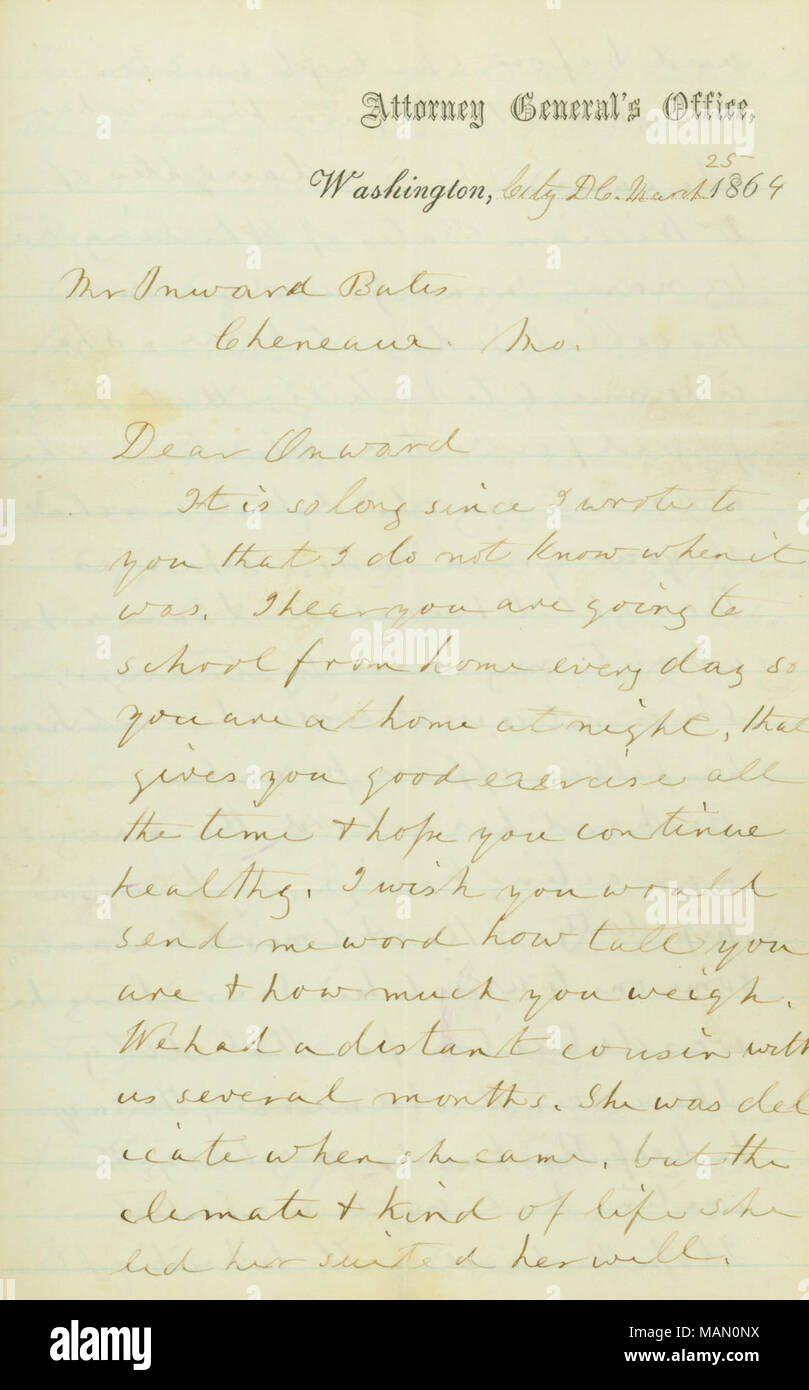 Attorney General's Office,
25
Washington, City D.C. March 1864
Mr Onward Bates
Cheneaux. Mo.
Dear Onward
It is so long since I wrote to
you that I do not know when it
was. I hear you are going to
school from home every day so
you are at home at night, that
gives you good exercise all
the time & hope you continue
healthy. I wish you would
send me word how tall you
are & how much you weigh.
We had a distant cousin with
us several months. She was del
icate when she came, but the
climate & kind of life she
led her suited her well.
alamy
Image ID: MAN0NX
www.alamy.com